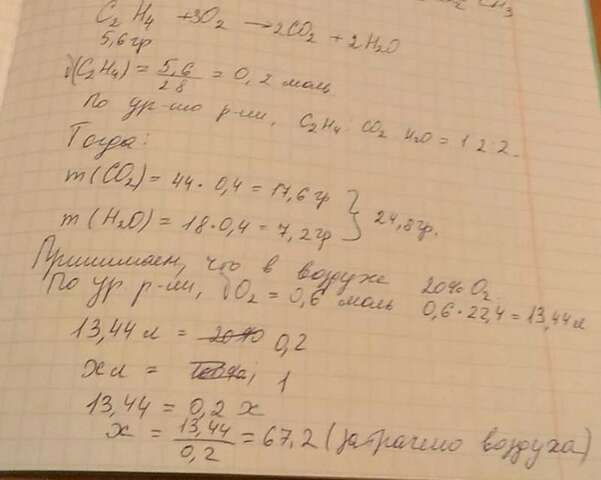 CH₃
C₂H₄ + 3O₂ → 2CO₂ + 2H₂O
5,6 гр
∂(C₂H₄) = 5,6/28 = 0,2 моль
По ур-нию р-ии, C₂H₄ : CO₂ H₂O = 1 2 : 2.
Тогда:
m(CO₂) = 44 · 0,4 = 17,6 гр
m(H₂O) = 18 · 0,4 = 7,2 гр } 24,8 гр.
Принимаем, что в воздухе 20% O₂
По ур р-ии, ∂O₂ = 0,6 моль 0,6 · 22,4 = 13,44 л
13,44 л = 0,2
x л = 1
13,44 = 0,2 x
x = 13,44/0,2 = 67,2 (затрачено воздуха)